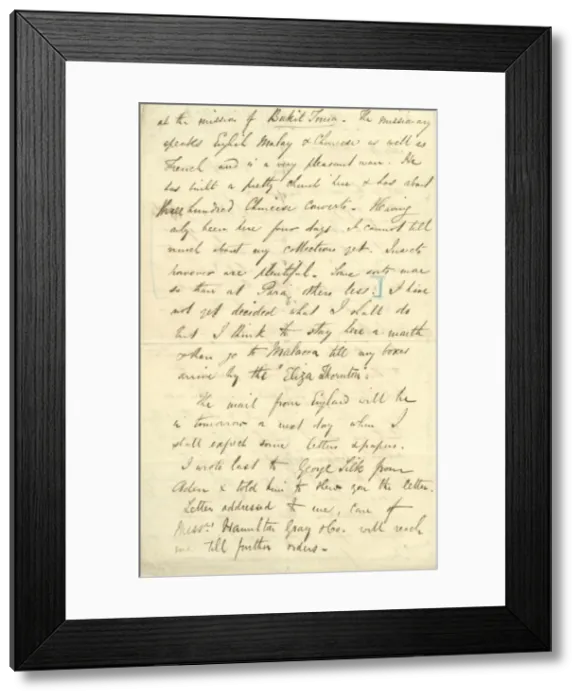 at the mission of Bukit Tima. The missionary
speaks English Malay & Chinese as well as
French and is a very pleasant man. He
has built a pretty church here & has about
three hundred Chinese converts. Having
only been here four days I cannot tell
much about my collections yet. Insects
however are plentiful. Some sorts more
so than at Para, others less.] I have
not yet decided what I shall do
but I think to stay here a month
& then go to Malacca till my boxes
arrive by the "Eliza Thornton".
The mail from England will be
in tomorrow or next day when I
shall expect some letters & papers.
I wrote last to George Silk from
Aden & told him to shew you the letter.
Letter addressed to me, care of
Messrs. Hamilton Gray & Co. will reach
me till further orders.